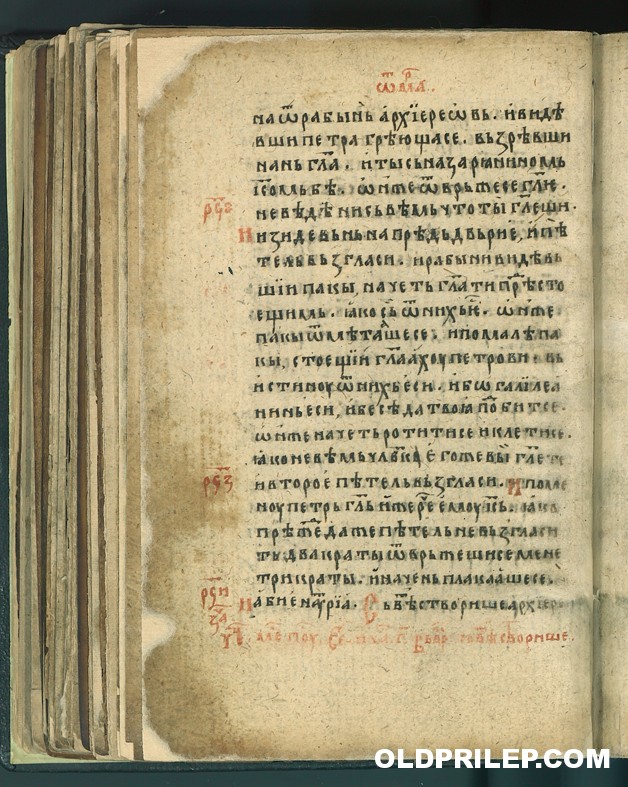 ѿ мр҃ка.
на ѿ рабынь а҆рхі҆ереѡ҆вь. и҆ видѣ
вши петра грѣющасе. вьзрѣвши
нань гл҃а. и ты сь назаряниномь
і҆с҃омь бѣ. ѡ҆нже ѿврьжесе гл҃ѥ.
не вѣдѣ ни сьвѣмь что ты гл҃еши.
р҃ч҃ѕ
И изиде вьнь на прѣдьдворие, и҆ пѣ
тель вьзгласи. и рабыни видѣвь
шїи пакы, начеть гл҃ати прѣ҆сто
ещимь. ꙗко сь ѿ нихь ѥ҆. ѡ҆нже
пакы ѿмѣташесе. и помалѣ па
кы, стоещїи гл҃аахоу петрови. вь
и҆стиноу ѿ нихь еси. и҆бо галїлеа
нинь еси, и҆ бесѣда твоꙗ по҆битсе.
ѡ҆нже начеть ротитисе и клетисе.
ꙗко не вѣмь чл҃вка е҆гоже вы гл҃ете
р҃ч҃з
и҆ второе пѣтель вьзгласи. И поме
ноу петрь гл҃ь и҆же рече е҆моу і҆с҃ь. ꙗко
прѣжде даже пѣтель не вьзгласи
ть два краты ѿврьжешисе мене
три краты. и҆ начень плакаашесе.
р҃ч҃и
И а҆бие на оутрїа. Сьвѣть створише а҆рхїере
створише.
OLDPRILEP.COM